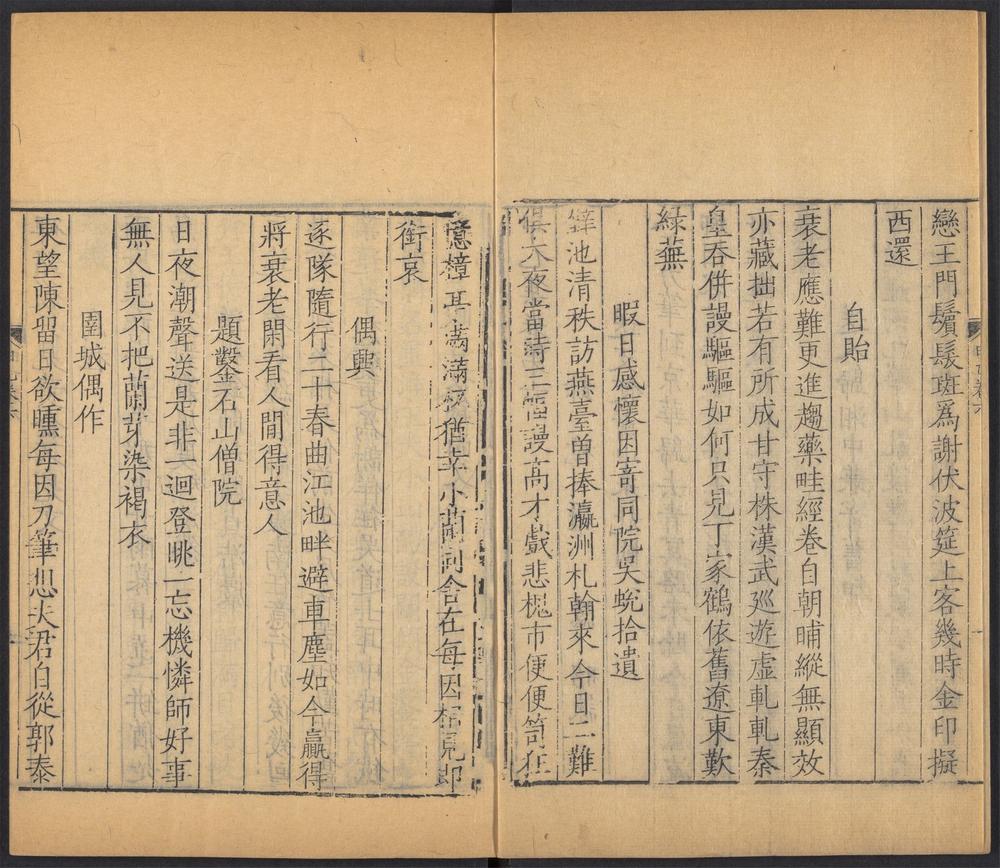 戀王門鬢髮斑爲謝伏波筵上客幾時金印擬
西還
自貽
衰老應難更進趨藥畦經卷自朝晡縱無顯效
亦藏拙若有所成甘守株漢武巡遊虛軋軋秦
皇吞併謾驅驅如何只見丁家鶴依舊遼東歎
綠蕪
暇日感懷因寄同院吳蛻拾遺
璧池清秩訪燕臺曽捧瀛洲札翰來今日二難
俱大夜當時三謾高才戲悲槐市便便笥狂
憶樟耳滿滿杯猶幸小蘭同舍在每因相見即
銜哀
偶興
逐隊隨行二十春曲江池畔避車塵如今贏得
將衰老閑看人間得意人
題鑿石山僧院
日夜潮聲送是非一迴登眺一忘機憐師好事
無人見不把蘭芽染褐衣
圍城偶作
東望陳留日欲曛每因刀筆想夫君自從郭泰